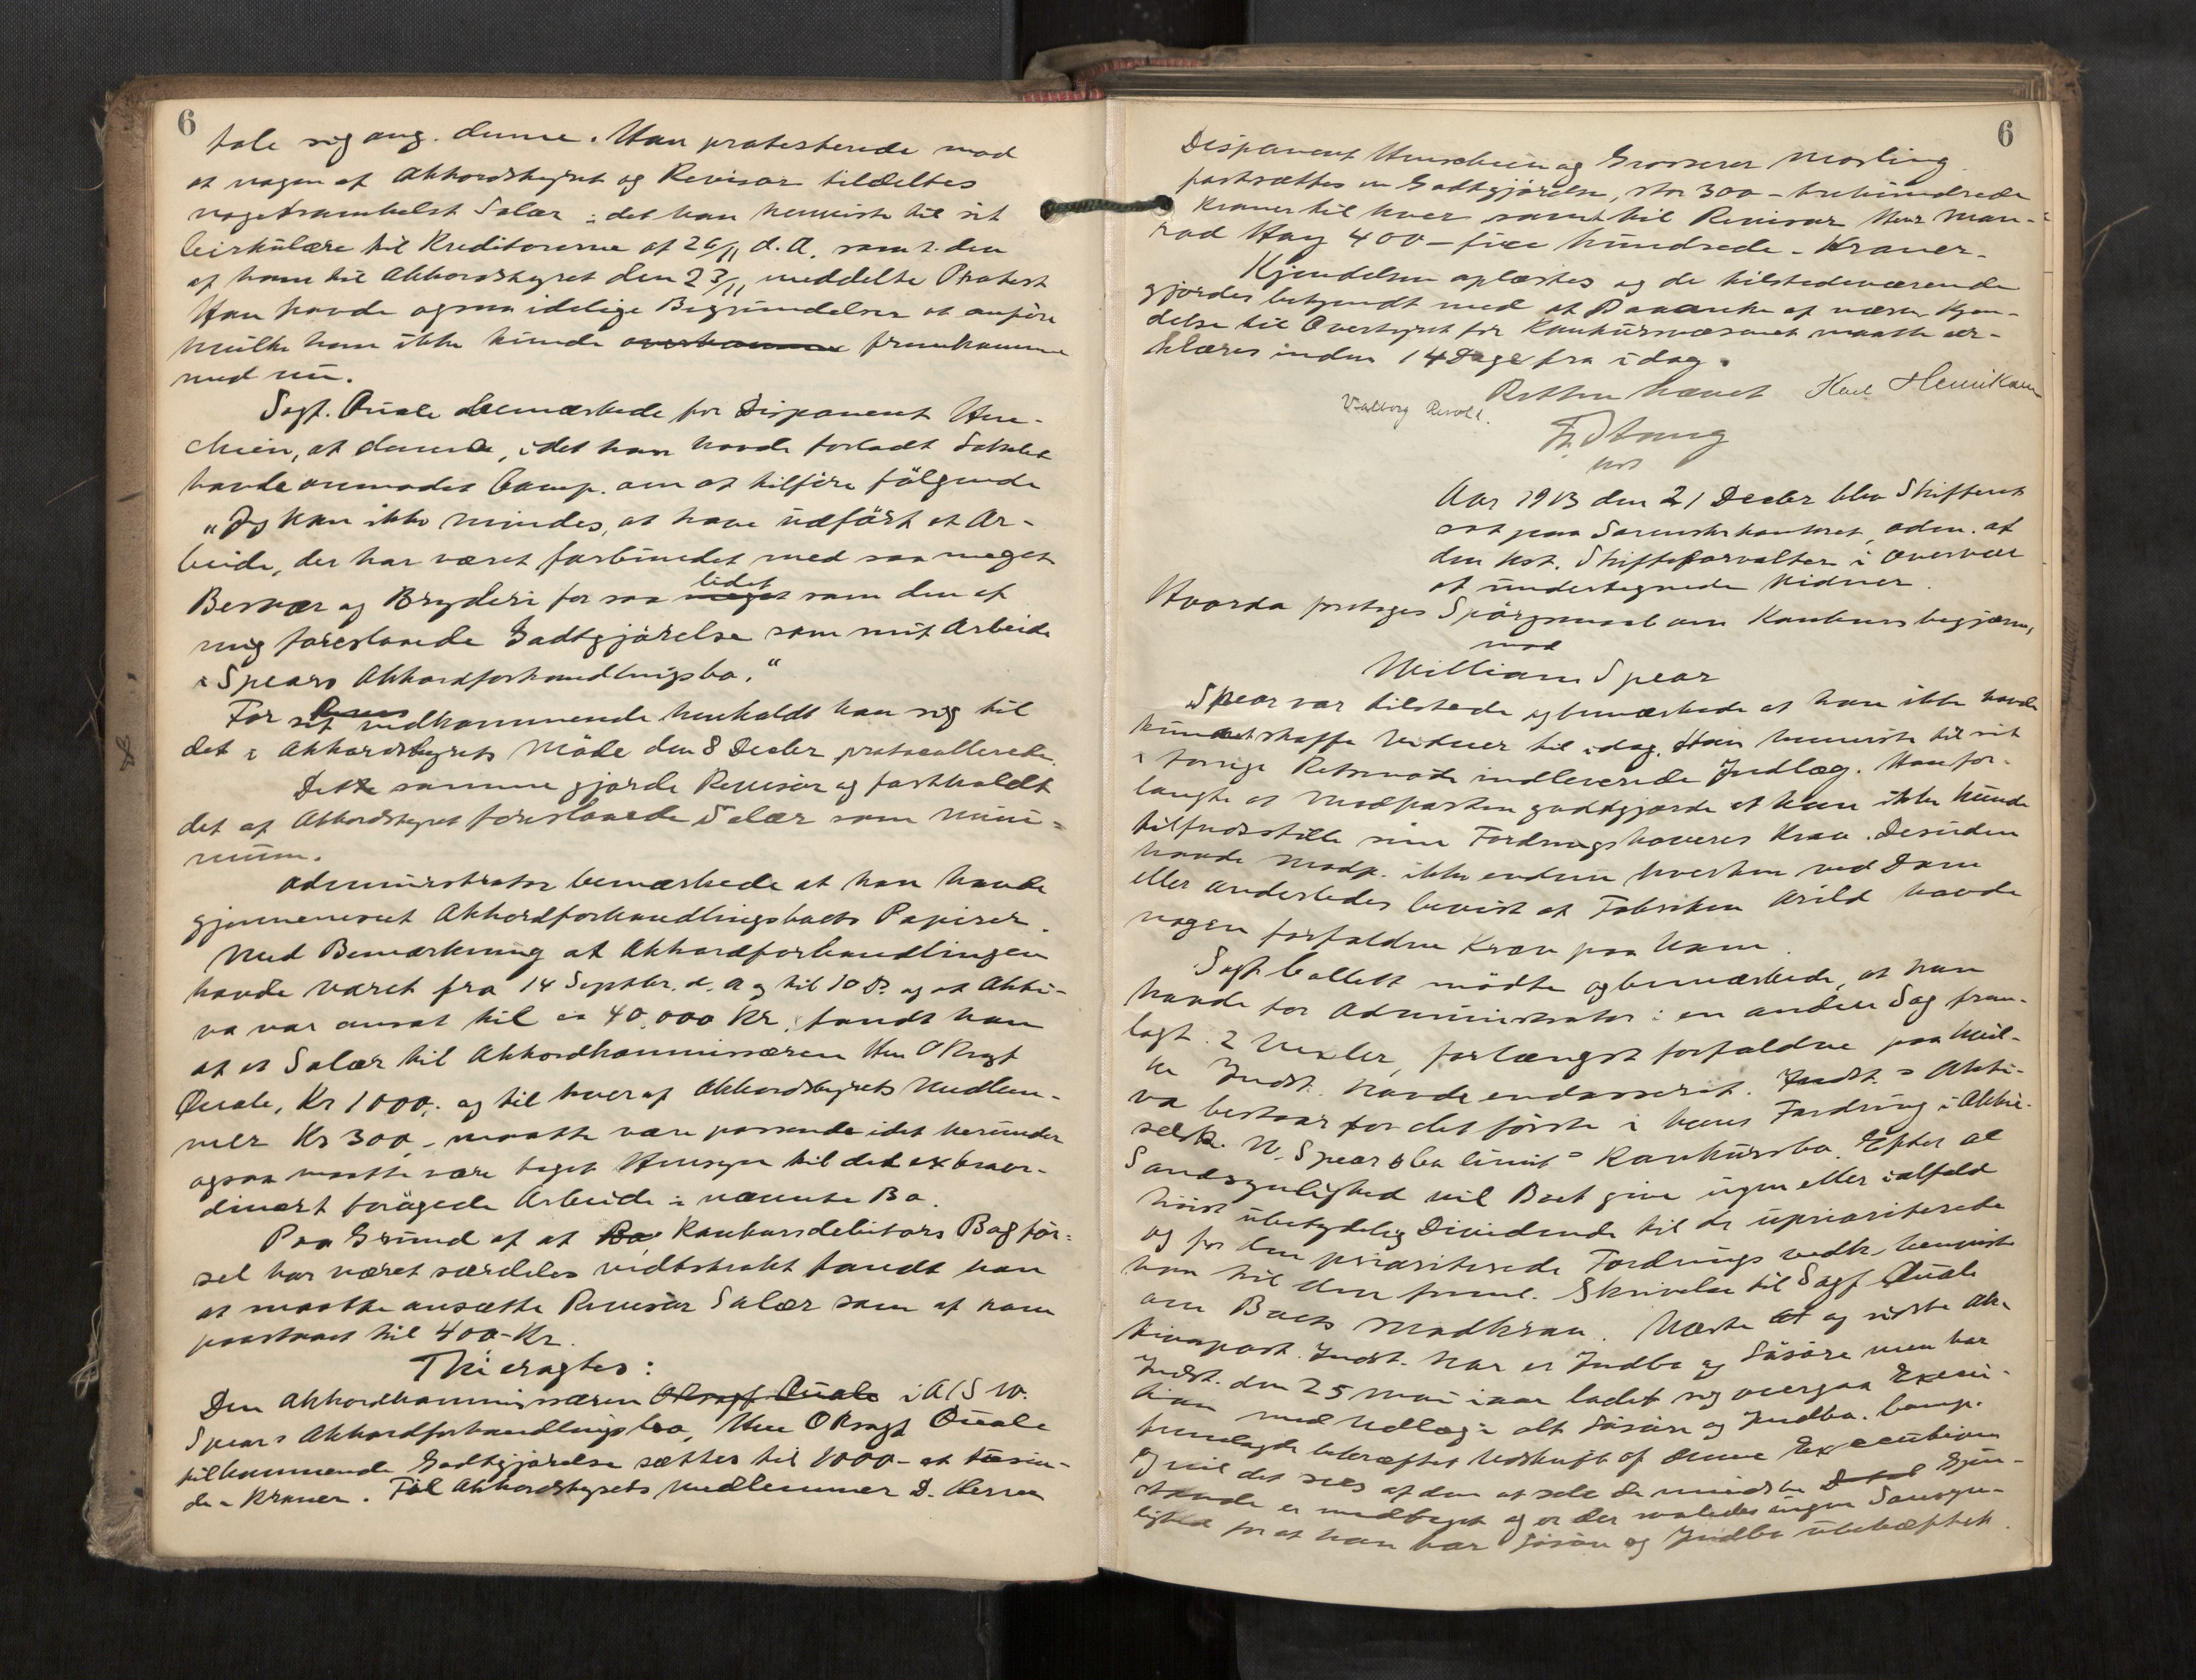 6
tale sig ang. denne. Han protesterede mod
at nogen af Akkordstyret og Revisor tildeltes
nogetsomhelst Salær i det han henviste til sit
Cirkulære til Kreditorerne af 26/11 d. A. samt den
af ham til Akkordstyret den 23/11 meddelte Protest
Han havde ogsaa Begrundelser at anføre
hvilke han ikke kunde overkomme fremkomme
med nu.
Sagf. Quale bemærkede for Disponent Hen-
chien, at denne, idet han havde forladt Lokalet
havde anmodet Comp. om at tilføre følgende
"Jeg kan ikke mindes, at have udført et Ar-
beide, der har været forbundet med saa meget
Besvær og Bryderi for saa meget lidet som den af
mig foreslaaede Godtgjörelse som mit Arbeide
i Spears Akkordforhandlingsbo."
For sit vedkommende henholdt han sig til
det i Akkordstyrets Möde den 8 Decbr protocollerede.
Dette samme gjorde Revisor og fastholdt
det af Akkordstyret foreslaaede Salær som mini-
mum.
Administrator bemærkede at han havde
gjennemseet Akkordforhandlingsboets Papirer.
Med Bemærkning at Akkordforhandlingen
havde varet fra 14 Septbr. d. A og til 10 Ds. og at Akti-
va var ansat til ca 40,000 Kr, fandt han
at et Salær til Akkordkommissæren Hr. ORsagf
Quale, Kr 1000,- og til hver af Akkordstyrets Medlem-
mer Kr 300,- maatte være passende idet herunder
ogsaa maatte være taget Hensyn til det extraor-
dinært forögede Arbeide i nævnte Bo.
Paa Grund af at Bo Konkursdebitors Bogför-
sel har været særdeles vidtstrakt fandt han
at maatte ansætte Revisor Salær som af ham
paastaaet til 400- Kr.
Thi eragtes:
Den Akkordkommissæren ORsagf Quale i A/S W.
Spears Akkordforhandlingsbo, Herr ORsagf Quale
tilkommende Godtgjörelse sættes til 1000- et tusin-
de - Kroner. Til Akkordstyrets Medlemmer D. Herrer
6
Disponent Henschien og Grosserer Mosling
fastsættes en Godtgjörelse, stor 300 - trehundrede
Kroner til hver samt til Revisor Herr Man-
rad Hay 400 - fire hundrede - Kroner -
Kjendelsen oplæstes og de tilstedeværende
gjordes bekjendt med at Paaanke af nærv. Kjen-
delse til Overstyret for Konkursvæsenet maatte er-
klæres inden 14 Dage fra idag.
Retten hævet Karl Henriksen
Valborg Revold.
Aar 1913 den 21 Decbr blev Skifteret
sat paa Sorenskr kontoret, adm. af
den kst. Skifteforvalter i Overvær
af undertegnede Vidner.
Hvorda foretoges Spörgsmaal om Konkurs begjæring
mod
William Spear
Spear var tilstede og bemærkede at han ikke havde
kundet skaffe Vidner til idag. Han henviste til sit
i forrige Retsmöde indleverede Indlæg. Han for-
langte at Modparten godtgjorde at han ikke kunde
tilfredsstille sine Fordringshaveres Krav. Desuden
havde Modp. ikke endnu hverken ved Dom
eller anderledes bevist at Fabriken Arild havde
nogen forfaldne Krav paa ham.
Sagf. Collett mödte og bemærkede, at han
havde for Administrator i en anden Sag frem-
lagt 2 Vexler, forlængst forfaldne paa hvil-
ke Indst. havde endosseret. Indst.s Akti-
va bestaar for det förste i hans Fordring i Aktie-
selsk. W. Spear & Co limit.s Konkursbo. Efter al
Sandsynlighed vil Boet give ingen eller ialfald
höist ubetydelig Dividende til de upriariterede
og for den priariterede Fordrings vedk. henviste
han til den freml. Skrivelse til Sagf Quale
om Boets Modkrav. Næste og sidste Ak-
tivapost. Indst. har er Indbo og Lösöre men har
Indst. den 25 Mai iaar ladet sig overgaa Execu-
tion med Udlæg i alt Lösöre og Indbo. Comp.
fremlagde bekræftet Udskrift af denne Execution
og vil det sees af den at selv de mindste Gjen-
stande er medtaget og er der saaledes ingen Sansyn-
lighed for at han har Lösöre og Indbo ubehæftet.